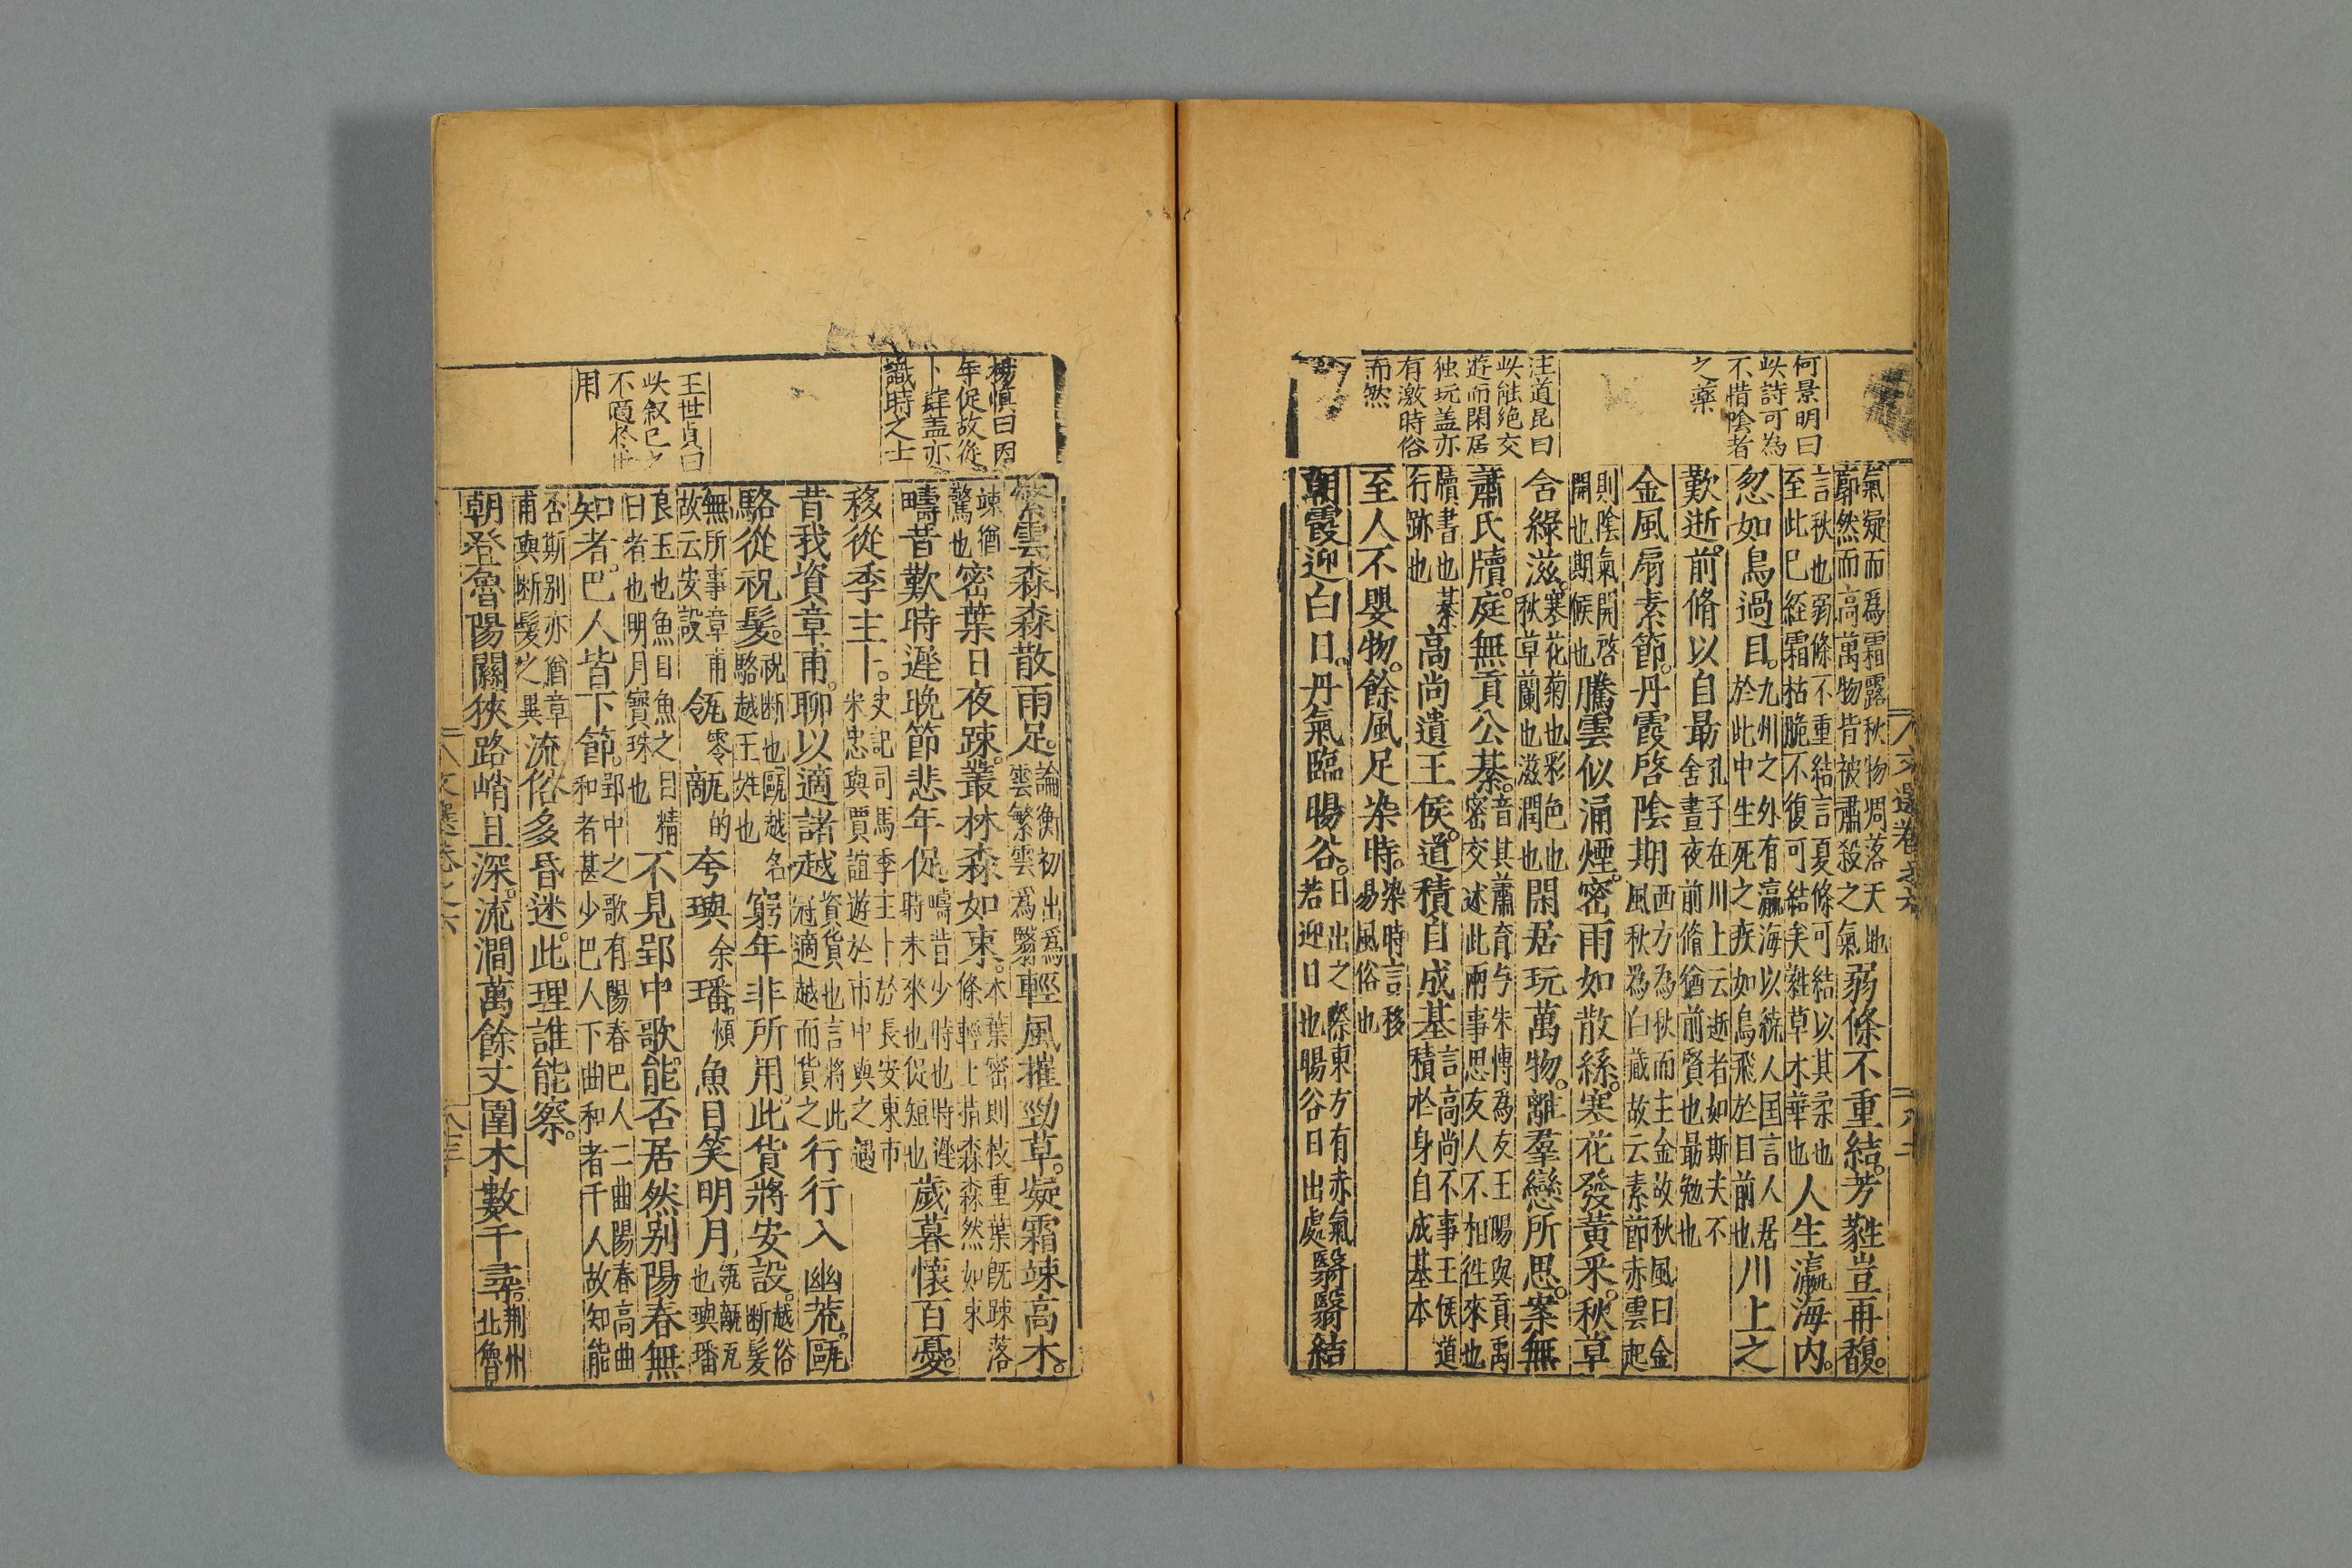 何景明曰
此詩可為
不惜陰者
之藥
汪道昆曰
此能絶交
遊而閑居
独玩盖亦
有激時俗
而然
氣凝而爲霜露秋物凋落天地郭然而高萬物皆被肅殺之氣弱條不重結。芳蕤豈再馥。
言秋也弱條不重結言夏條可結以其柔也至此已経霜枯脆不復可結矣蕤草木華也人生瀛海内。
忽如鳥過目。九州之外有瀛海以統人囯言人居於此中生死之疾如鳥飛於目前也川上之
歎逝。前脩以自朂孔子在川上云逝者如斯夫不舍晝夜前脩猶前賢也朂勉也
金風扇素節。丹霞啓陰期西方為秋而主金故秋風曰金風秋為白蔵故云素節赤雲起
則陰氣開啓開也期候也騰雲似涌煙。密雨如散絲。寒花發黃采。秋草
含綠滋。寒花菊也彩色也秋草蘭也滋潤也閑居玩萬物。離羣戀所思。案無
蕭氏牘。庭無貢公綦。音其蕭育与朱愽為友王陽與貢禹密交述此兩事思友人不相徃來也
牘書也綦行跡也高尚遺王侯。道積自成基言高尚不事王候道積於身自成基本
至人不嬰物。餘風足染時。染時言移易風俗也
朝霞迎白日。丹氣臨暘谷。日出之際東方有赤氣若迎日也暘谷日出處翳翳結
文選卷之六
楊慎曰因
年促故從
卜肆盖亦
識時之士
王世貞曰
此叙己之
不適於世
用
繁雲森森散雨足。論衡初出爲雲繁雲爲翳輕風摧勁草。凝霜竦高木。
竦猶驚也密葉日夜疎。叢林森如束。木葉密則枝重葉旣疎落條輕上指森森然如束
疇昔歎時遲。晚節悲年促。疇昔少時也時遲時未來也促短也歲暮懷百憂。
移從季主卜。史記司馬季主卜於長安東市宋忠與賈誼遊於市中與之遇
昔我資章甫。聊以適諸越資貨也言將此冠適越而貨之行行入幽荒。甌
駱從祝髮。祝断也甌越名駱越王姓也窮年非所用。此貨將安設。越俗断髮
無所事章甫故云安設瓴零甋的夸璵余璠。煩魚目笑明月。瓴甋瓦也璵璠
良玉也魚目魚之目精曰者也明月寶珠也不見郢中歌。能否居然别陽春無
和者。巴人皆下節。郢中之歌有陽春巴人二曲陽春高曲和者甚少巴人下曲和者千人故知能
否斯别亦猶章甫與断髮之異流俗多昏迷。此理誰能察。
朝登魯陽關狹路峭且深。流澗萬餘丈圍木數千尋。荆州北魯
文選卷之六